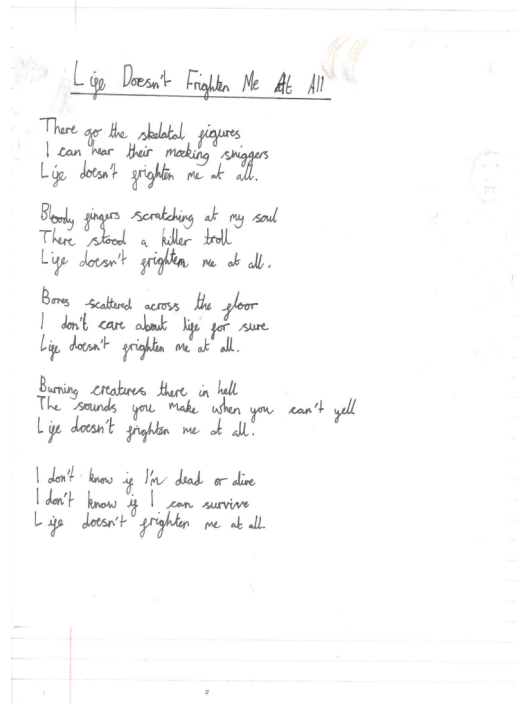 Life Doesn't Frighten Me At All
There go the skelatal figures
I can hear their mocking sniggers
Life doesn't frighten me at all.
Bloody fingers scratching at my soul
There stood a killer troll
Life doesn't frighten me at all.
Bones scattered across the floor
I don't care about life for sure
Life doesn't frighten me at all.
Burning creatures there in hell
The sounds you make when you can't yell
Life doesn't frighten me at all.
I don't know if I'm dead or alive
I don't know if I can survive
Life doesn't frighten me at all.